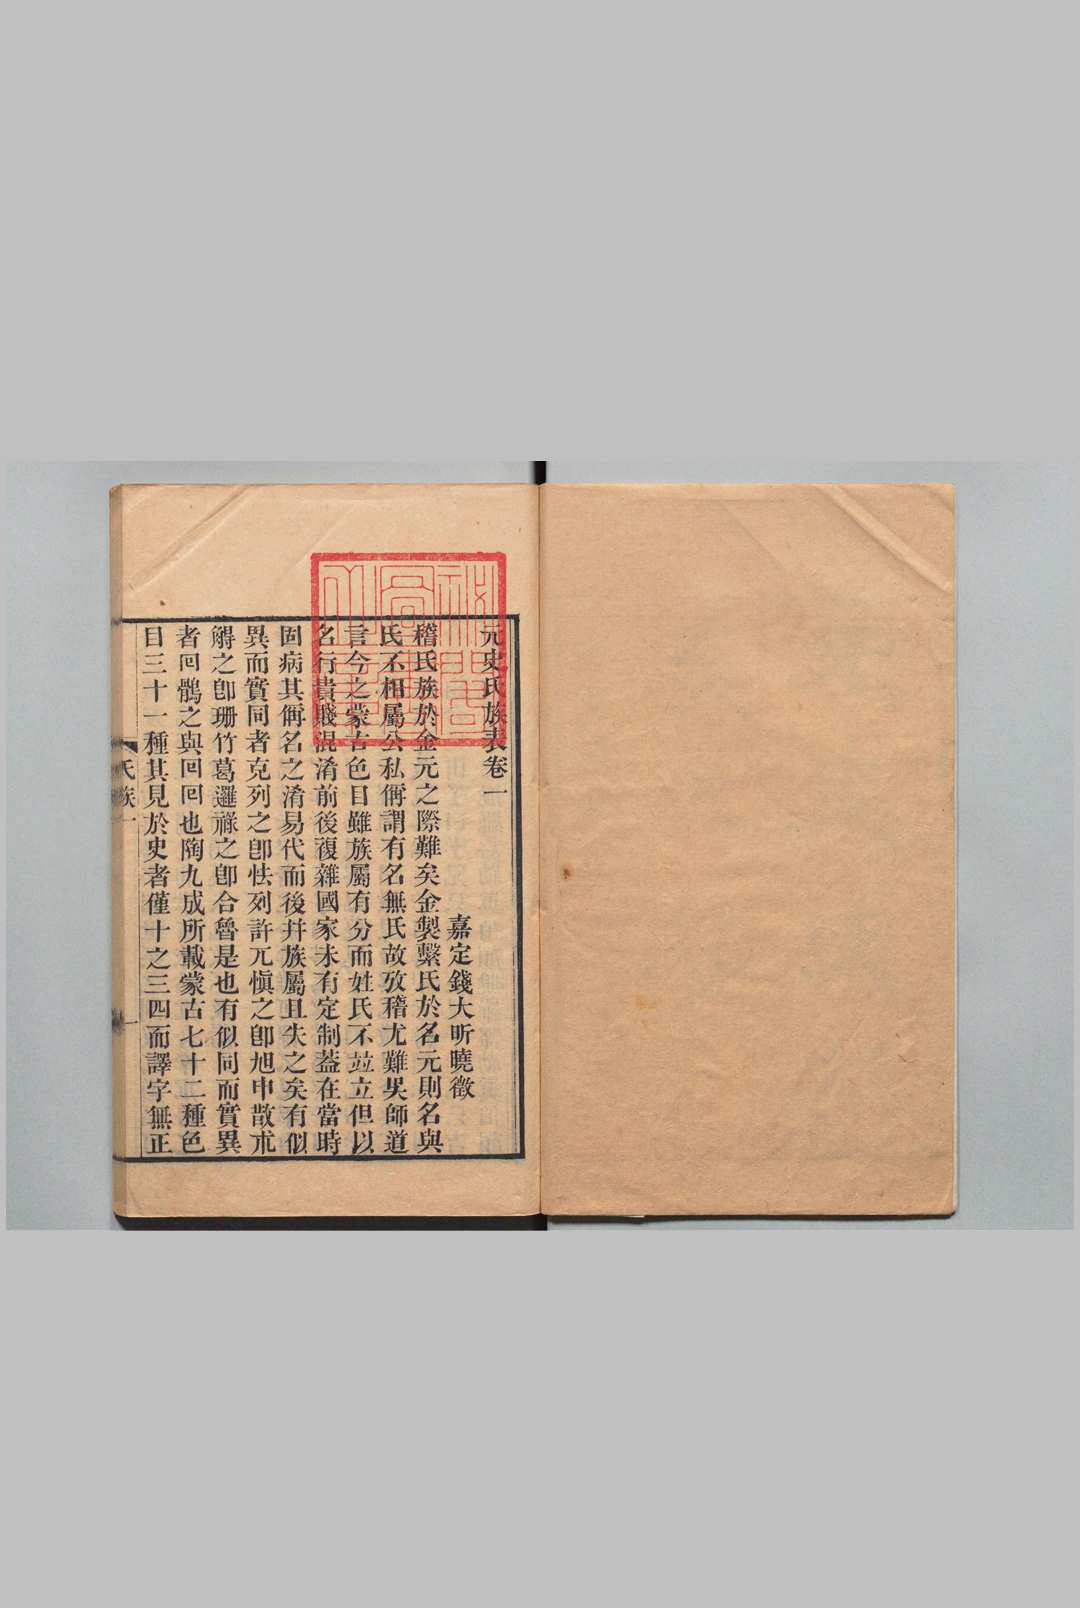 元史氏族表卷一
嘉定錢大昕曉徵
稽氏族於金元之際難矣金製繫氏於名元則名與
氏不相屬公私偁謂有名無氏故攷稽尤難吳師道
言今之蒙古色目雖族屬有分而姓氏不竝立但以
名行貴賤混淆前後複雜國家未有定制葢在當時
固病其偁名之淆易代而後幷族屬且失之矣有似
異而實同者克列之卽怯列許兀愼之卽旭申散朮
䚟之卽珊竹葛邏祿之卽合魯是也有似同而實異
者回鶻之與回回也陶九成所載蒙古七十二種色
目三十一種其見於史者僅十之三四而譯字無正
氏族一
一